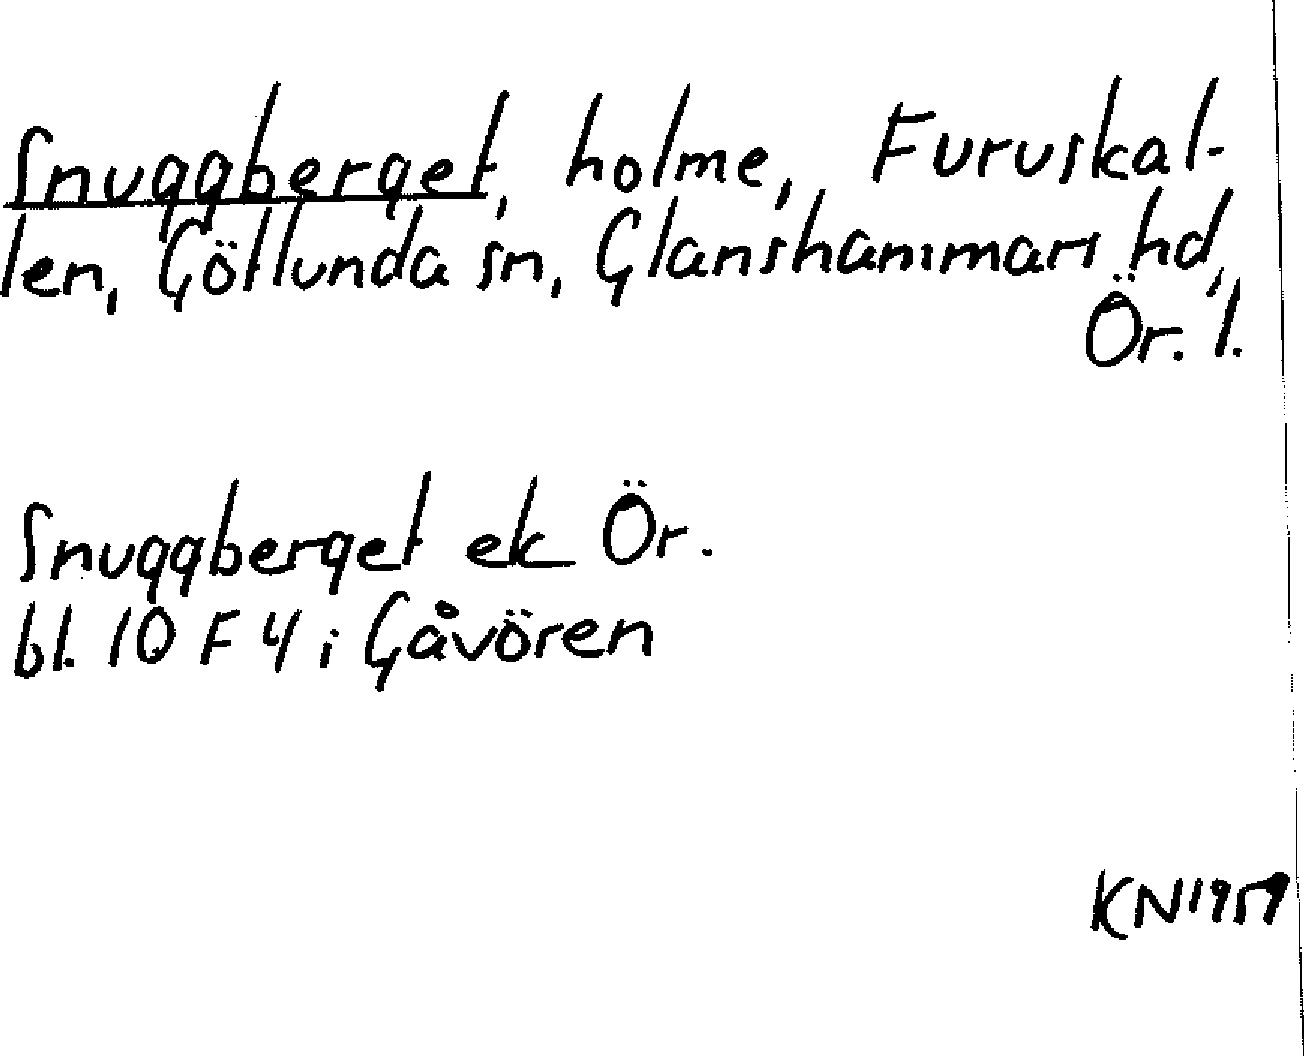 Snuggberget, holme, Furuskal-
len, Götlunda sn, Glanshammars hd,
Ör. l.
Snuggberget ek Ör.
bl. 10 F 4 i Gåvören
KN 1959